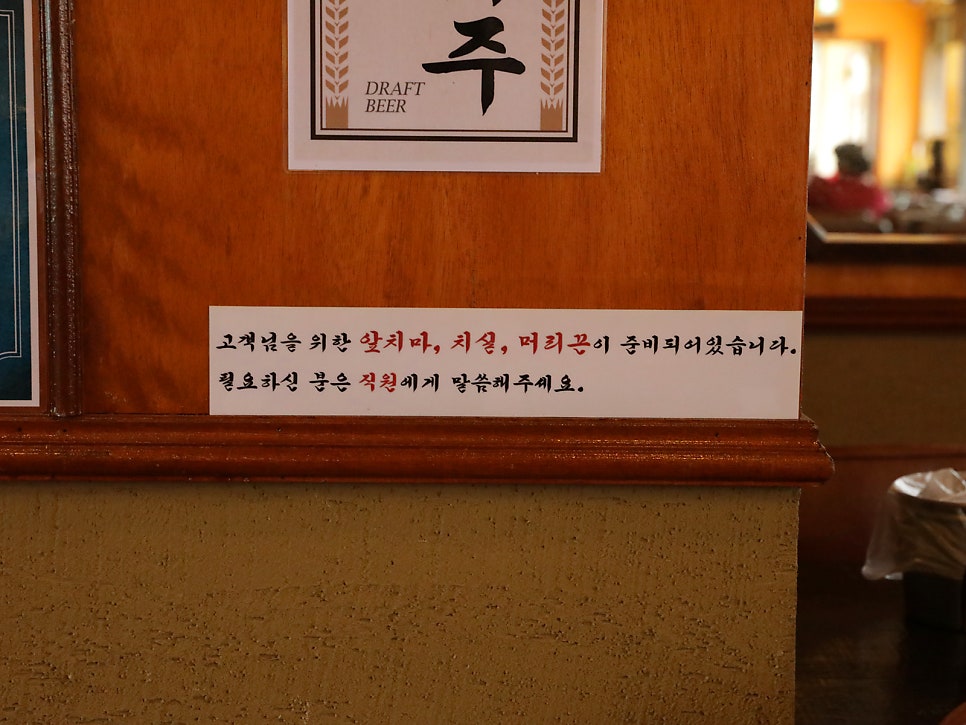 주
DRAFT
BEER
고객님을 위한 앞치마, 치실, 머리끈이 준비되어있습니다.
필요하신 분은 직원에게 말씀해주세요.